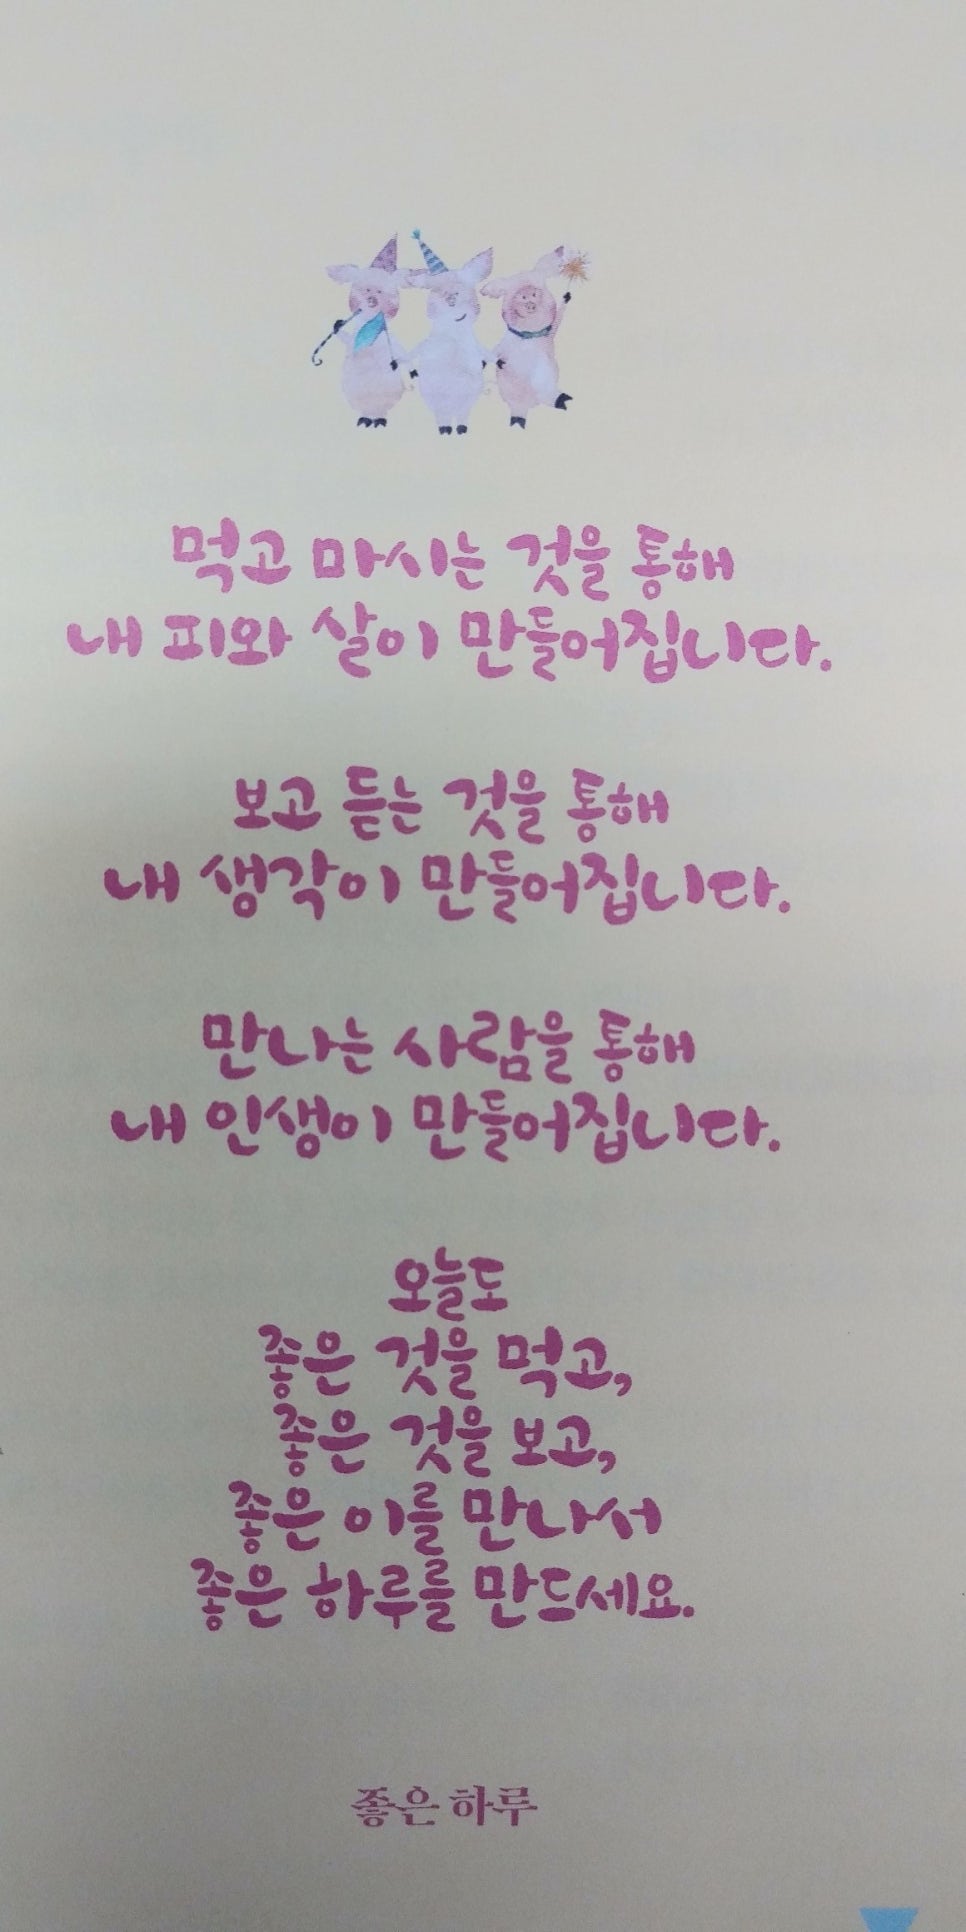 먹고 마시는 것을 통해
내 피와 살이 만들어집니다.
보고 듣는 것을 통해
내 생각이 만들어집니다.
만나는 사람을 통해
내 인생이 만들어집니다.
오늘도
좋은 것을 먹고,
좋은 것을 보고,
좋은 이를 만나서
좋은 하루를 만드세요.
좋은 하루